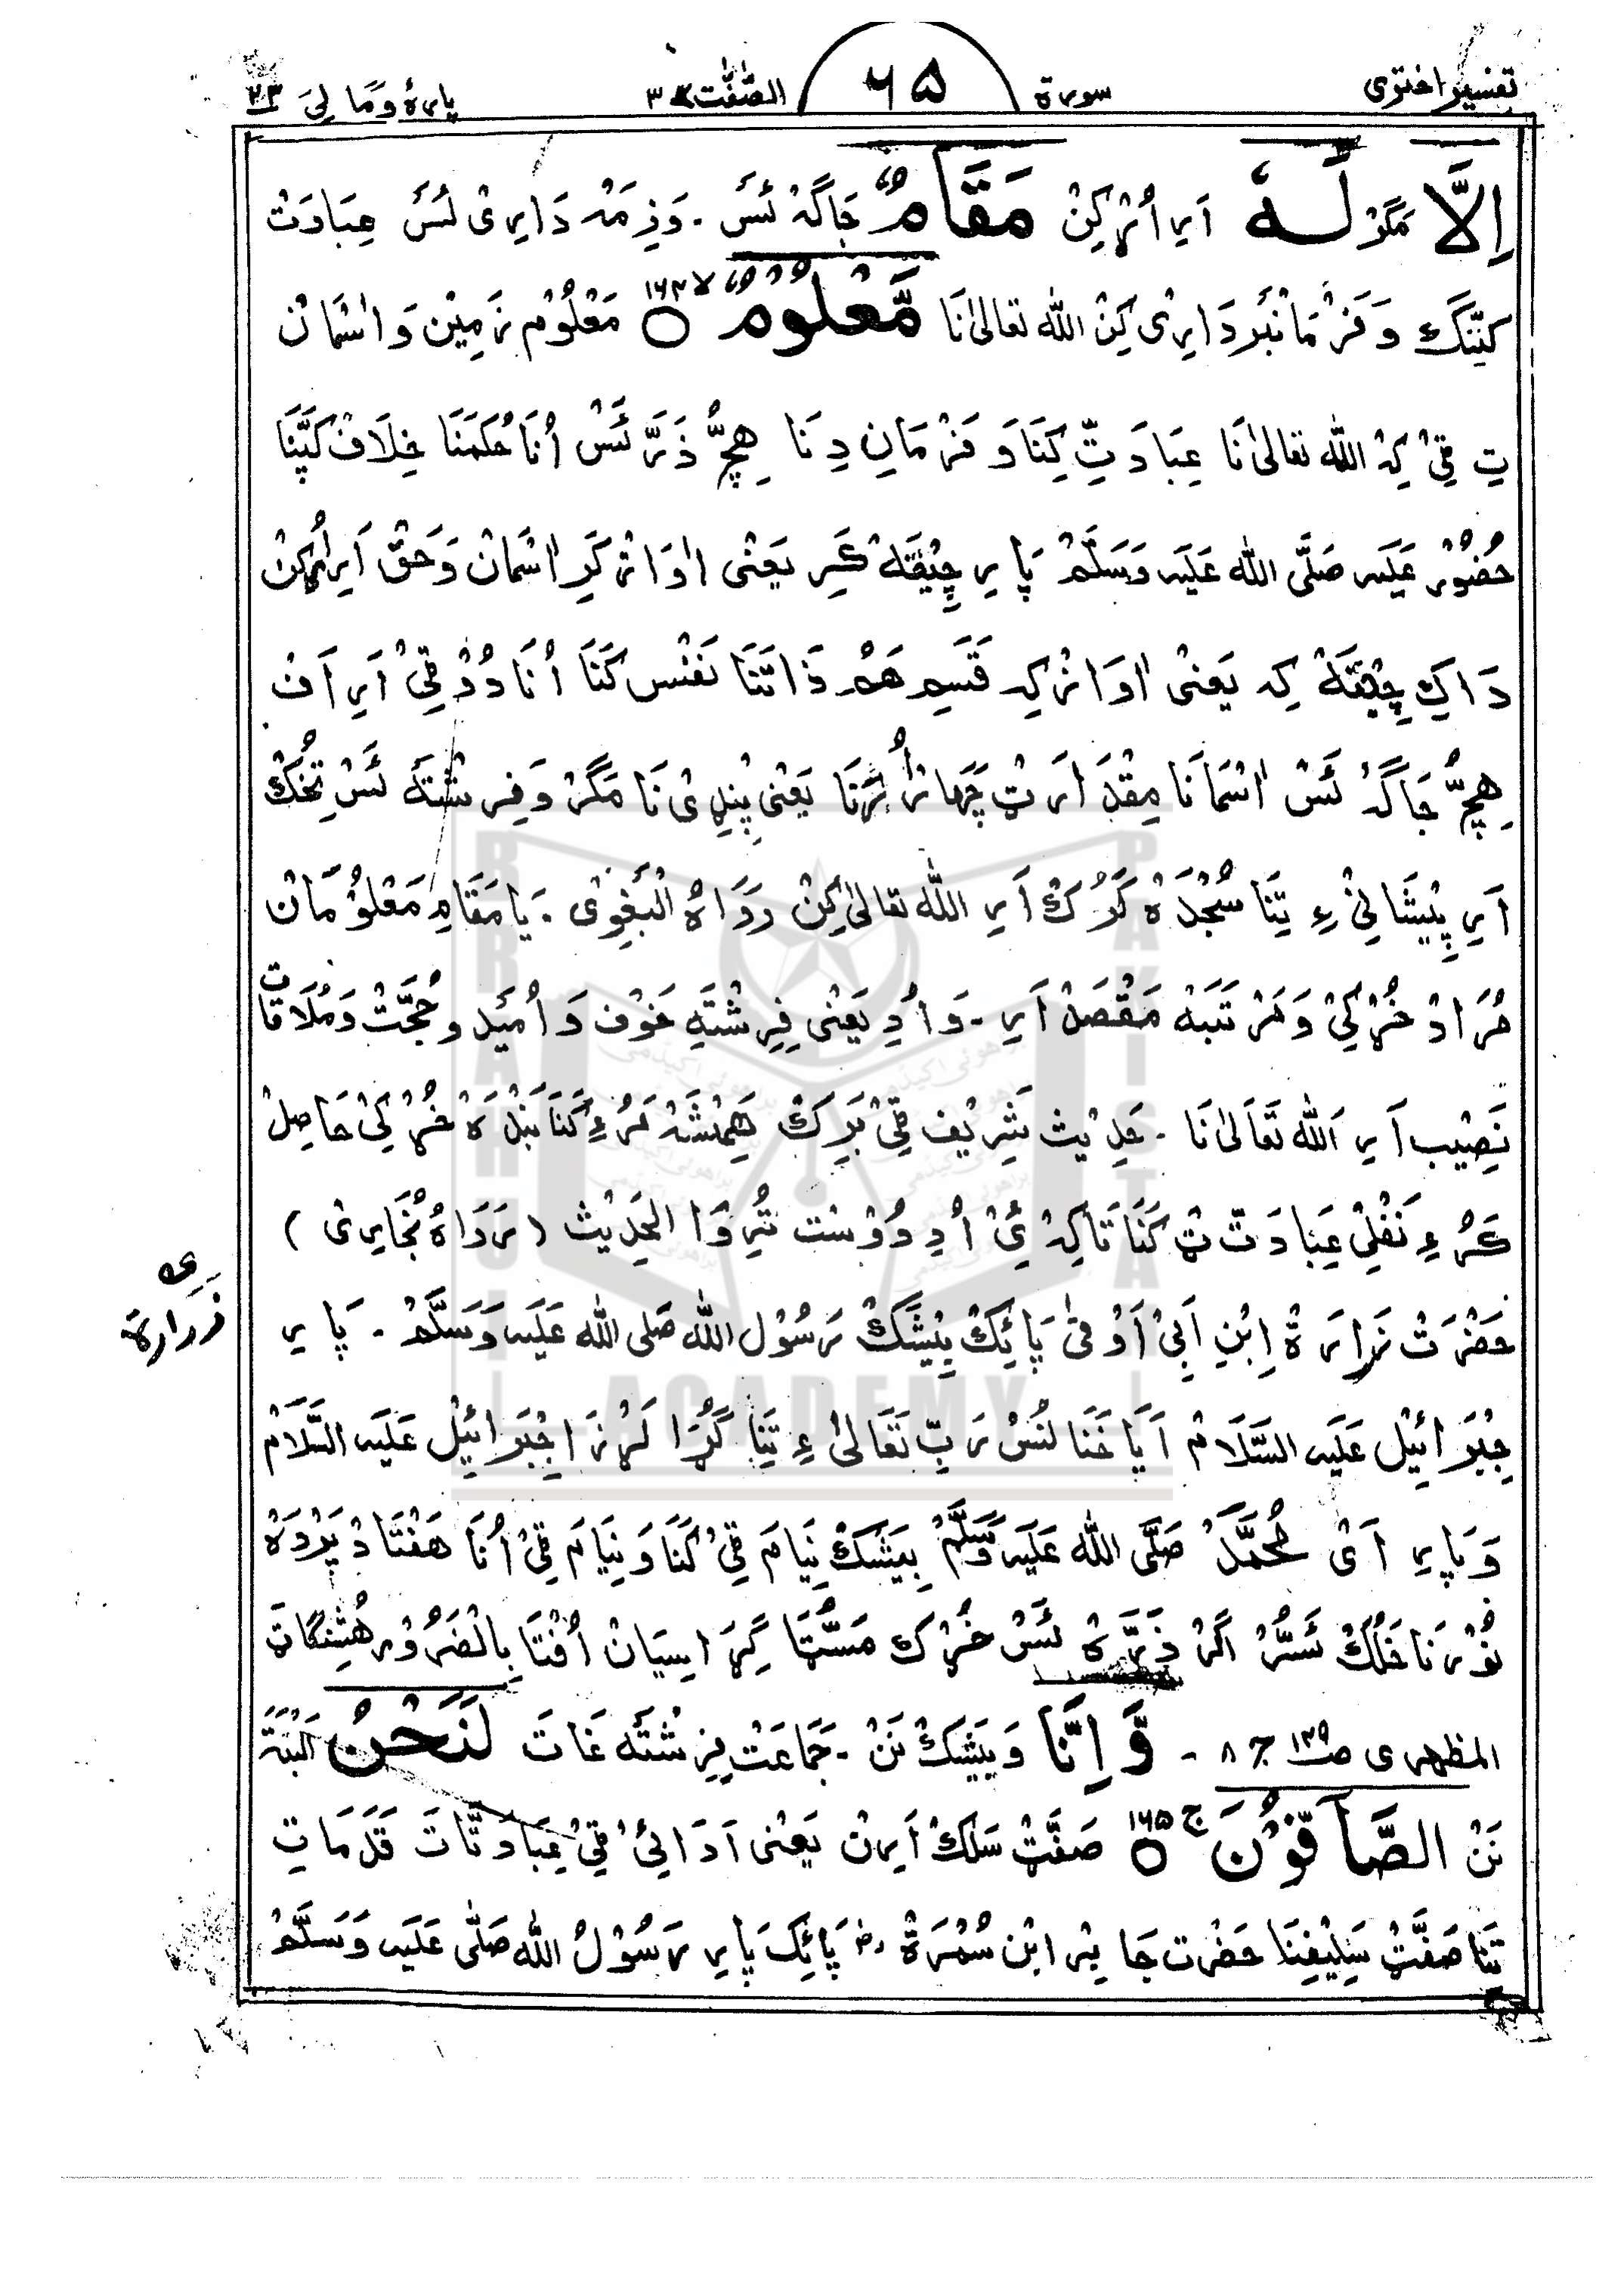 تفسیر اختری سورة ۶۵ الصّٰفّٰت ۳۷ پارۂ وَمَا لِیَ ۲۳
اِلَّا مَگَرْ لَهٗ اَیر اُڑکِنْ مَقَامٌ جَاگَہْ ئَسْ ۔ وَذِمَّہ دَایرِیْ ئَسْ عِبَادَتْ
کَنِّنگ ءِ وَفَرْمَانْبَردَارِیْ کِنْ اللّٰه تعالیٰ نَا مَّعْلُوْمٌ ۱۶۴ مَعْلُوْم زَمِیْن وَاٰسْمَانْ
تِ ٹِیْ کِہْ اللّٰه تعالیٰ نَا عِبَادَتِّ کِنَا وَفَرْمَانِ دِنَا هِچّ ذَرَّ ئَسْ اُنَا حُکمَنَا خِلَافْ کَپِّنَا
حُضُوْر عَلَیه صَلَّی اللّٰه عَلَیه وَسَلَّمْ پَایر چِیْقَهْ کَرِ یَعْنی اٰوَاز کَرِ اٰسْمَانْ وَحَقّ اَیر اُڑکِنْ
دَاکِ چِیْقَهْ کِہ یَعْنیْ اٰوَاز کِہ قَسَمِ هَمْ ذَاتَنَا نَفْس کَنَا اُنَا دُوْ ٹِیْ اَیر اَفْ
هِچّ جَاگَہْ ئَسْ اٰسْمَانَا مِقْدَارَتْ چَهَار یَعْنی پِنلِیْ نَا مَگَرْ وَفِرِشْتَه ئَسْ تِخُکْ
اَیر پِیْشَانِیْ ءِ تِنَا سُجْدَہْ کَرُکْ اَیر اللّٰه تعالیٰ کِنْ رَوَاهُ الْبَغِوِی ۔ یَا مَقَامِ مَعْلُوْمَانْ
مُرَادْ خُڑْکِیْ وَمَرْتَبَهْ مَقْصَدْ اَیر ۔ وَاُدِ یَعْنی فِرِشْتَهِ خَوْف وَاُمَیْد وحُجَّتْ وَمُلَاقَات
نَصِیْب اَیر اللّٰه تَعَالیٰ نَا ۔ حَدِیْث شَرِیْف ٹِیْ بَرِکْ هَمِیْشَهْ مَرءِ کَنَا بَنْدَہْ خُڑکِیْ حَاصِلْ
کَرءِ نَفْلِیْ عِبَادَتْ تْ کَنَا تَاکِہْ یْ اُدِ دُوْست تُرِوْا الحَدِیْث (رَوَاهُ بُخَارِیْ)
حَضْرَتْ زَرَارَةْ اِبْنِ اَبِیْ اَوْفیٰ پَائِکْ بِیْشَکْ رَسُوْل اللّٰه صَلَی اللّٰه عَلَیه وَسَلَّمْ ۔ پَایر
زرارة
جِبْرَائِیْل عَلَیه السَّلَامْ اَیَا خَنَانُسْ رَبِّ تَعَالیٰ ءِ تِنَا گُڑَا لَرْزَا جِبْرَائِیْل عَلَیه السَّلَامْ
وَپَایر اَیْ مُحَمَّدْ صَلَّی اللّٰه عَلَیه وَسَلَّمْ بِیْشَکْ نِیَامَ ٹِیْ کَنَا وَنِیَامَ ٹِیْ اُنَا هَفْتَادْ پَرْدَہْ
نُوْرنَا خَلُکْ ئَسُّرْ اَگَرْ ذَرَّہْ ئَسْ خُڑک مَسُّتَا گِڑَا سِیَانْ اُفْتَا بِالْضَرُوْر هُشِنگَاتَ
المظهری صـ ۱۳۹ ج ۸ ۔ وَّاِنَّا وَبِیْشَکْ نَنْ ۔ جَمَاعَتْ فِرِشْتَه غَاتَ لَنَحْنُ اَلْبَتَّةْ
نَنْ الصَّآفُّوْنَ ج ۱۶۵ صَفَّتْ سَلُکْ اَیرنْ یَعْنی اَدَائِیْ ٹِیْ عِبَادَتَّاتَ قَدَمَاتِ
تِنَا صَفَّتْ سَلِیْفِنَا حَضْرت جَابِر ابْن سُمْرَةْ رض پَائِکَ پَایر رَسُوْلُ اللّٰه صَلَّی عَلَیه وَسَلَّمْ
BRAHUI ACADEMY PAKISTAN